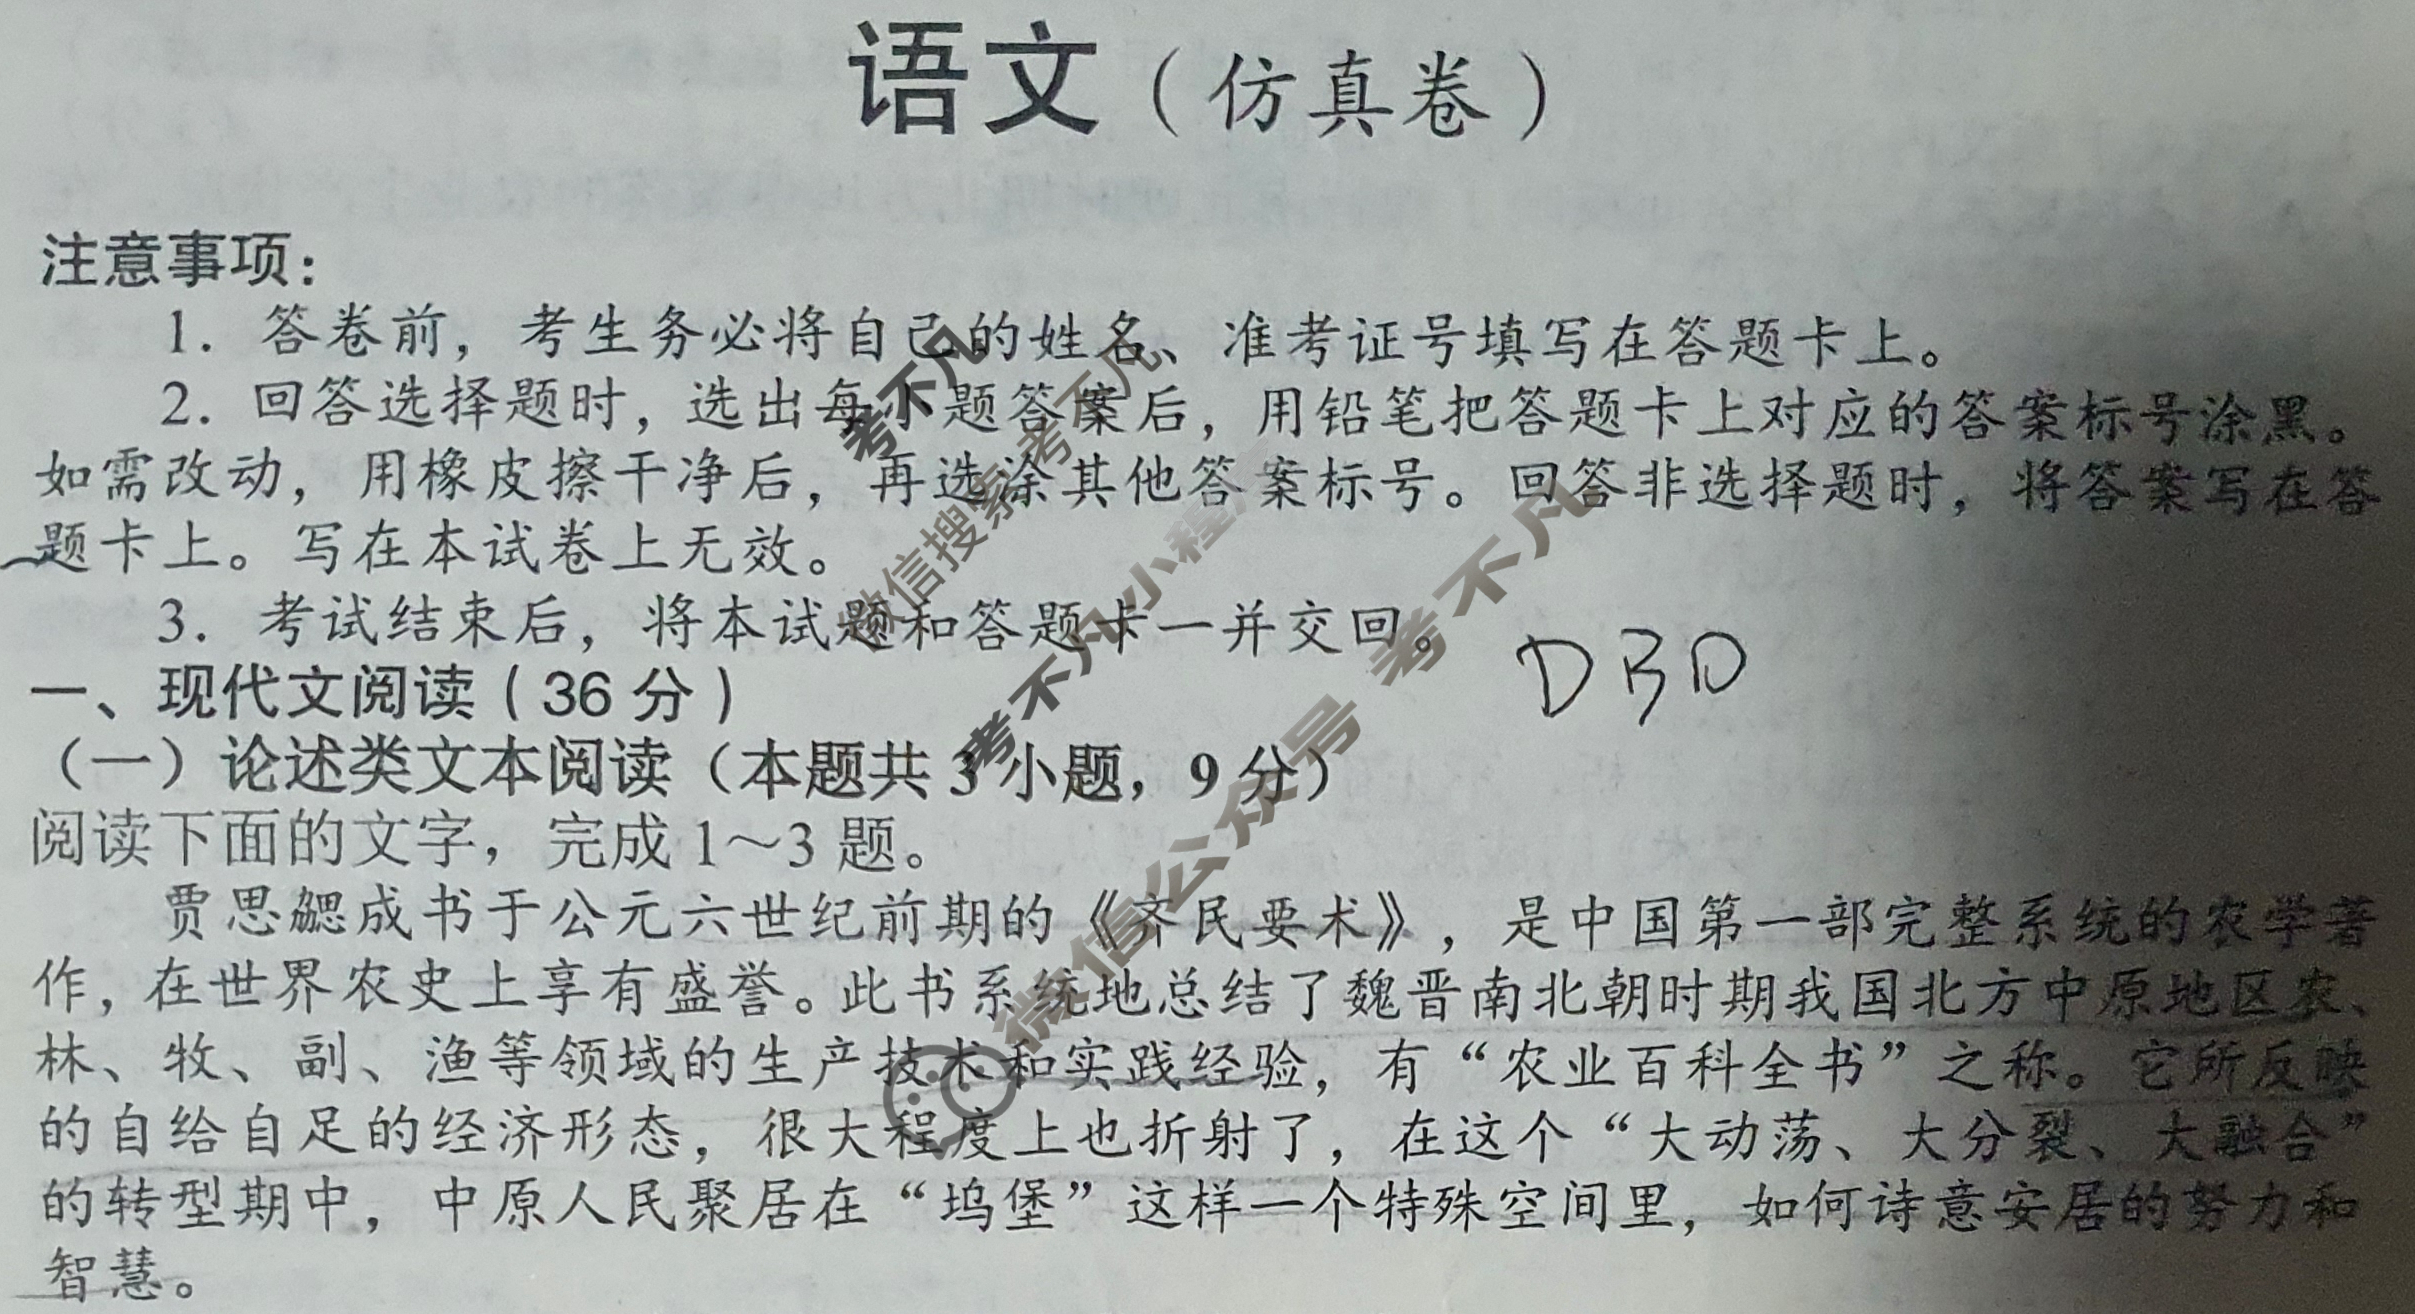 语文（仿真卷）
注意事项：
1. 答卷前，考生务必将自己的姓名、准考证号填写在答题卡上。
2. 回答选择题时，选出每小题答案后，用铅笔把答题卡上对应的答案标号涂黑。
如需改动，用橡皮擦干净后，再选涂其他答案标号。回答非选择题时，将答案写在答
题卡上。写在本试卷上无效。
3. 考试结束后，将本试题和答题卡一并交回。
DBD
一、现代文阅读（36 分）
（一）论述类文本阅读（本题共 3 小题，9 分）
阅读下面的文字，完成 1～3 题。
贾思勰成书于公元六世纪前期的《齐民要术》，是中国第一部完整系统的农学著
作，在世界农史上享有盛誉。此书系统地总结了魏晋南北朝时期我国北方中原地区农、
林、牧、副、渔等领域的生产技术和实践经验，有“农业百科全书”之称。它所反映
的自给自足的经济形态，很大程度上也折射了，在这个“大动荡、大分裂、大融合”
的转型期中，中原人民聚居在“坞堡”这样一个特殊空间里，如何诗意安居的努力和
智慧。
考不凡
微信搜索 考不凡
考不凡小程序
微信公众号 考不凡